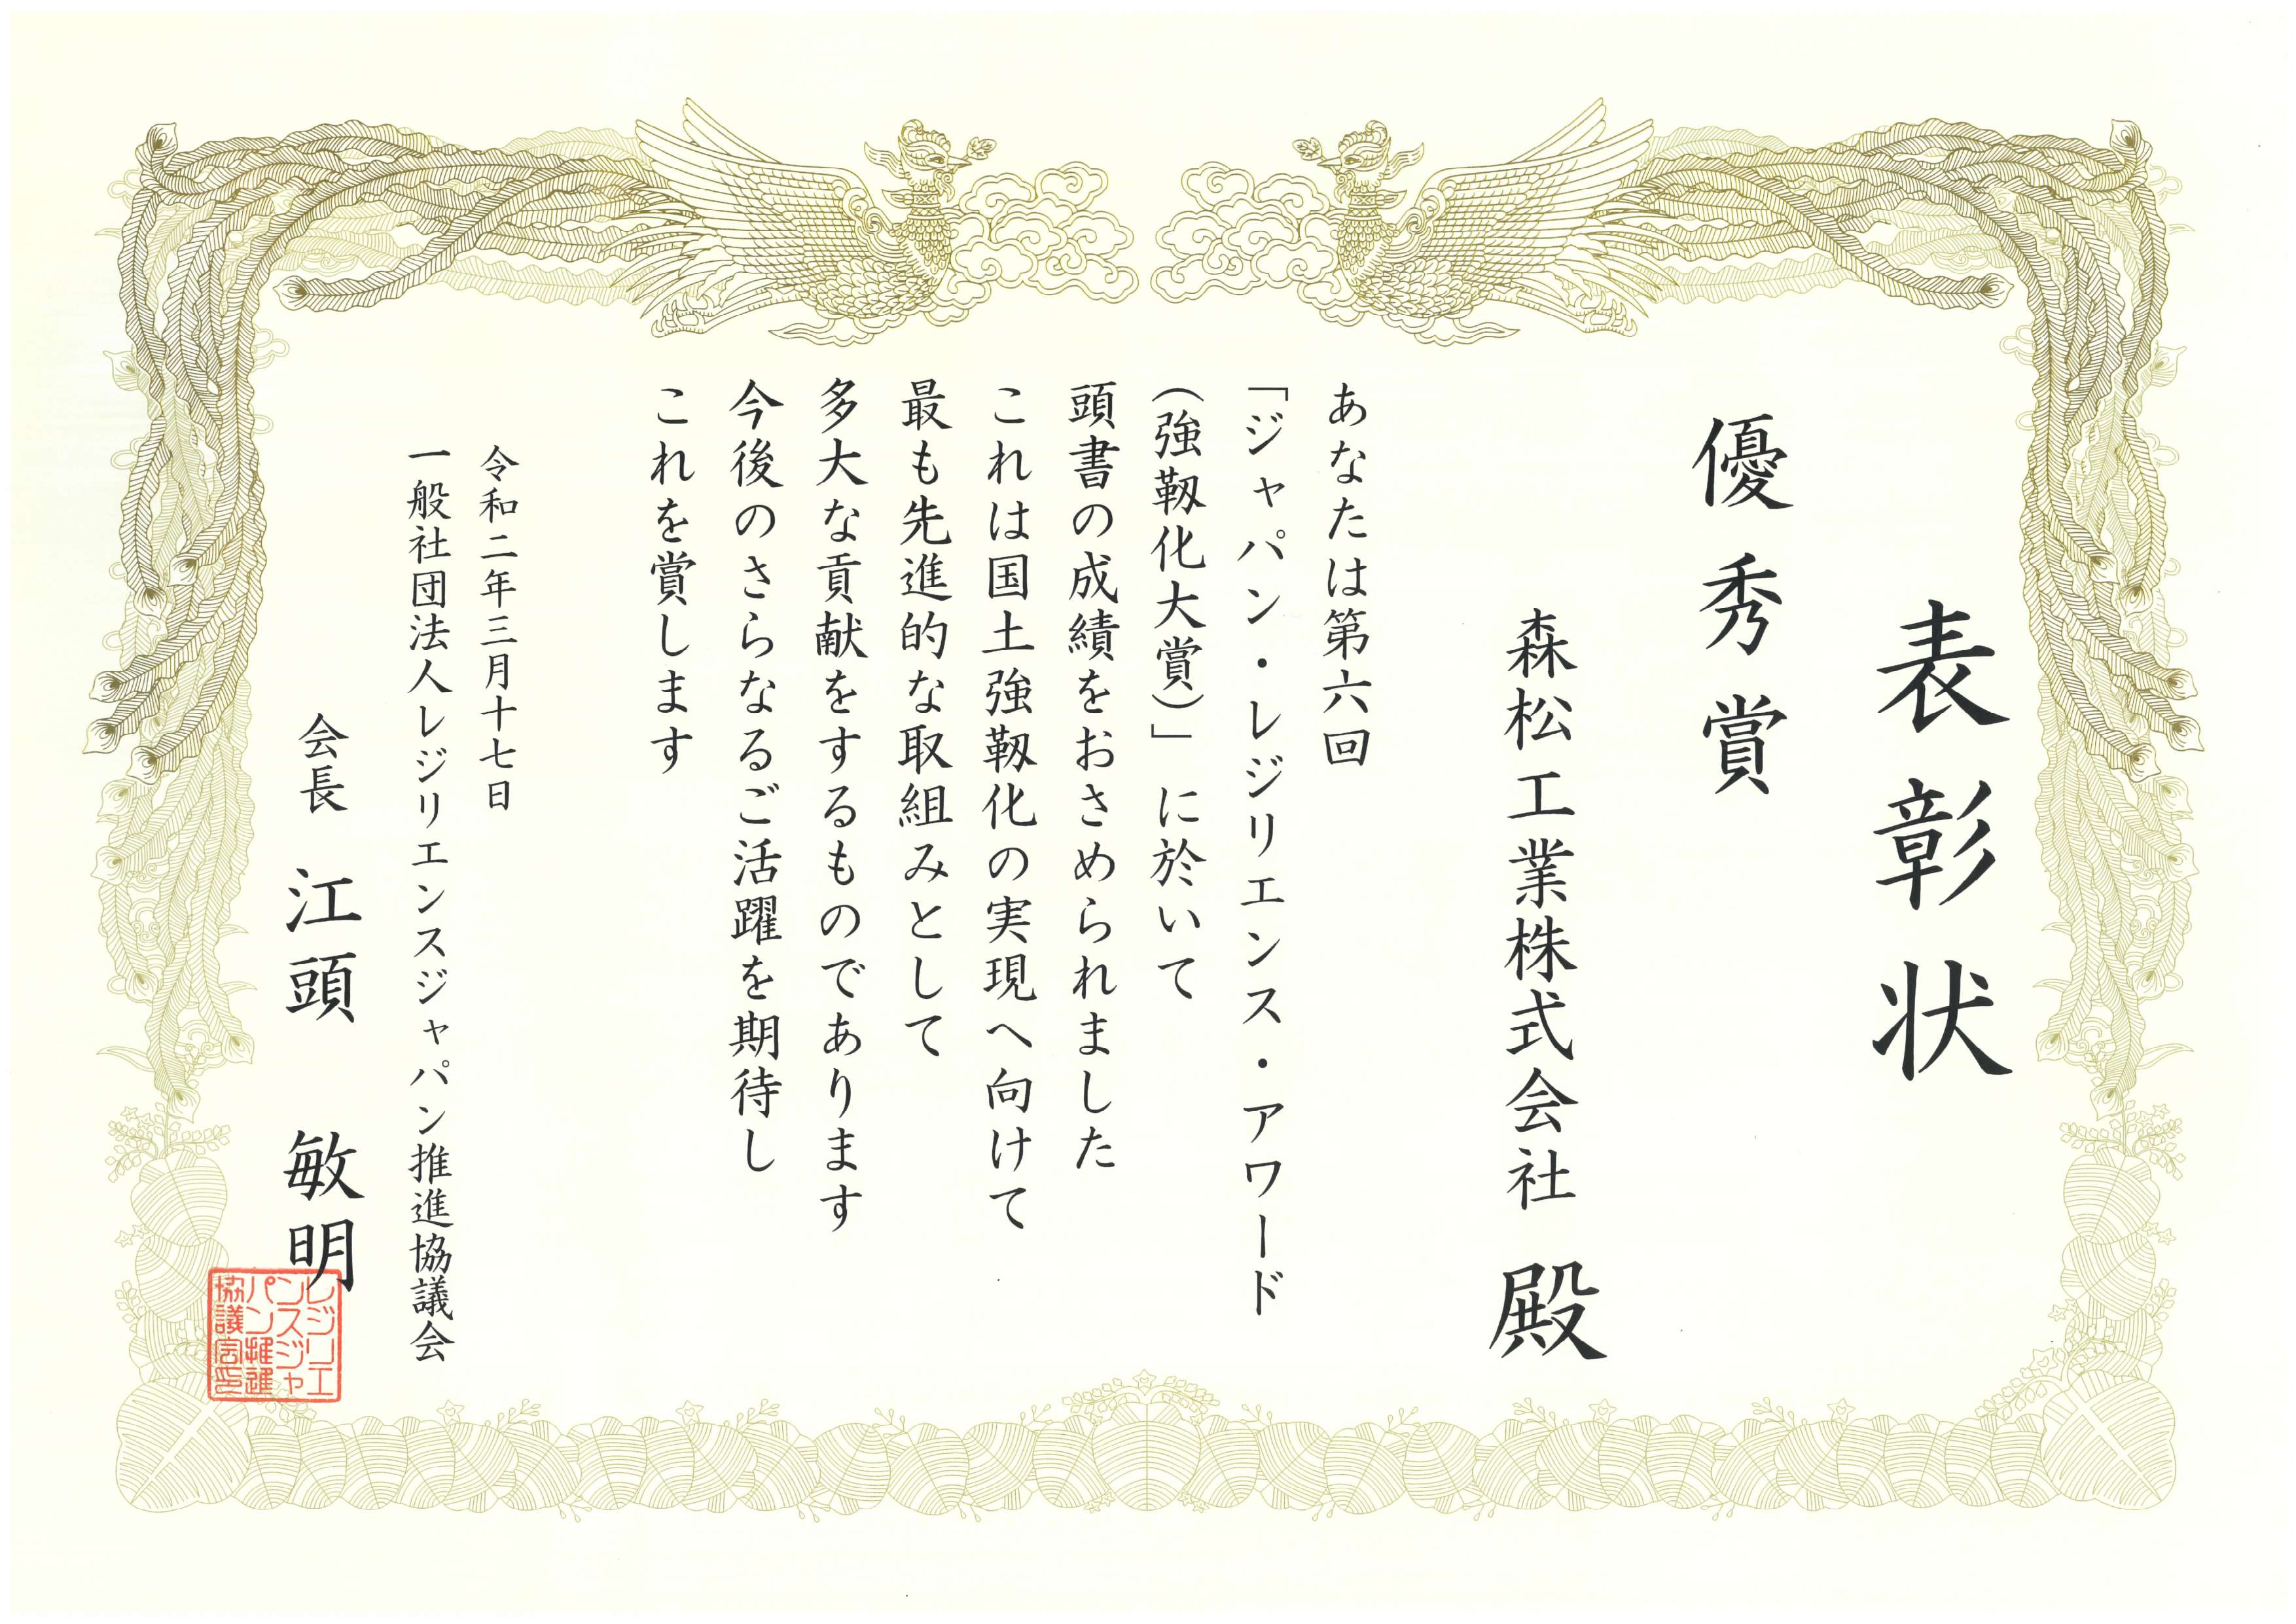 表彰状
優秀賞
森松工業株式会社 殿
あなたは第六回
「ジャパン・レジリエンス・アワード
(強靱化大賞)」に於いて
頭書の成績をおさめられました
これは国土強靱化の実現へ向けて
最も先進的な取組みとして
多大な貢献をするものであります
今後のさらなるご活躍を期待し
これを賞します
令和二年三月十七日
一般社団法人レジリエンスジャパン推進協議会
会長 江頭 敏明
レジリエ
ンスジャ
パン推進
協議会印